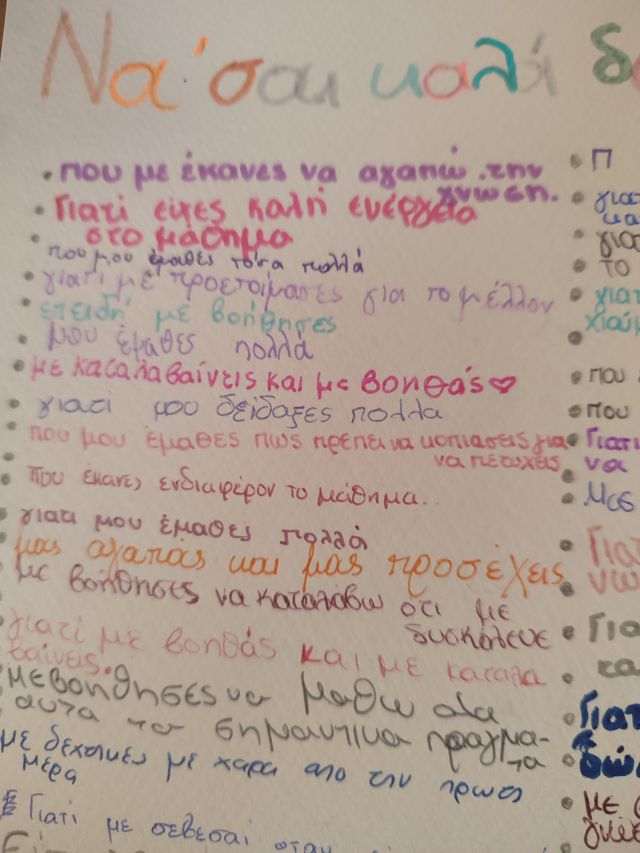 Να 'σαι καλά δ
• που με έκανες να αγαπώ την
γνώση.
• Γιατί είχες καλή ενέργεια
• στο μάθημα
που μου έμαθες τόσα πολλά
• γιατί με προετοίμασες για το μέλλον
• επειδή με βοήθησες
• μου έμαθες πολλά
• με καταλαβαίνεις και με βοηθάς♡
• γιατί μου δείδαξες πολλα
• που μου έμαθες πως πρέπει να κοπιάσεις για
να πετύχεις
• που έκανες ενδιαφέρον το μάθημα..
• γιατι μου έμαθες πολλά
• μας αγαπάς και μας προσέχεις
• με βοήθησες να καταλάβω ότι με
δυσκόλευε
γιατί με βοηθάς και με καταλα
βαίνεις.
με βοήθησες να μάθω όλα
αυτα τα σημαντικα πραγμα-
τα
με δεχτηκες με χαρα απο την πρωτη
μέρα
Γιατί με σεβεσαι οταν
• Π
• γιατ
κα
• για
• το
• γιατ
• που
• που
• Γιατι
• να
• Μας
• Γιατ
• Για
• Γιατ
• με